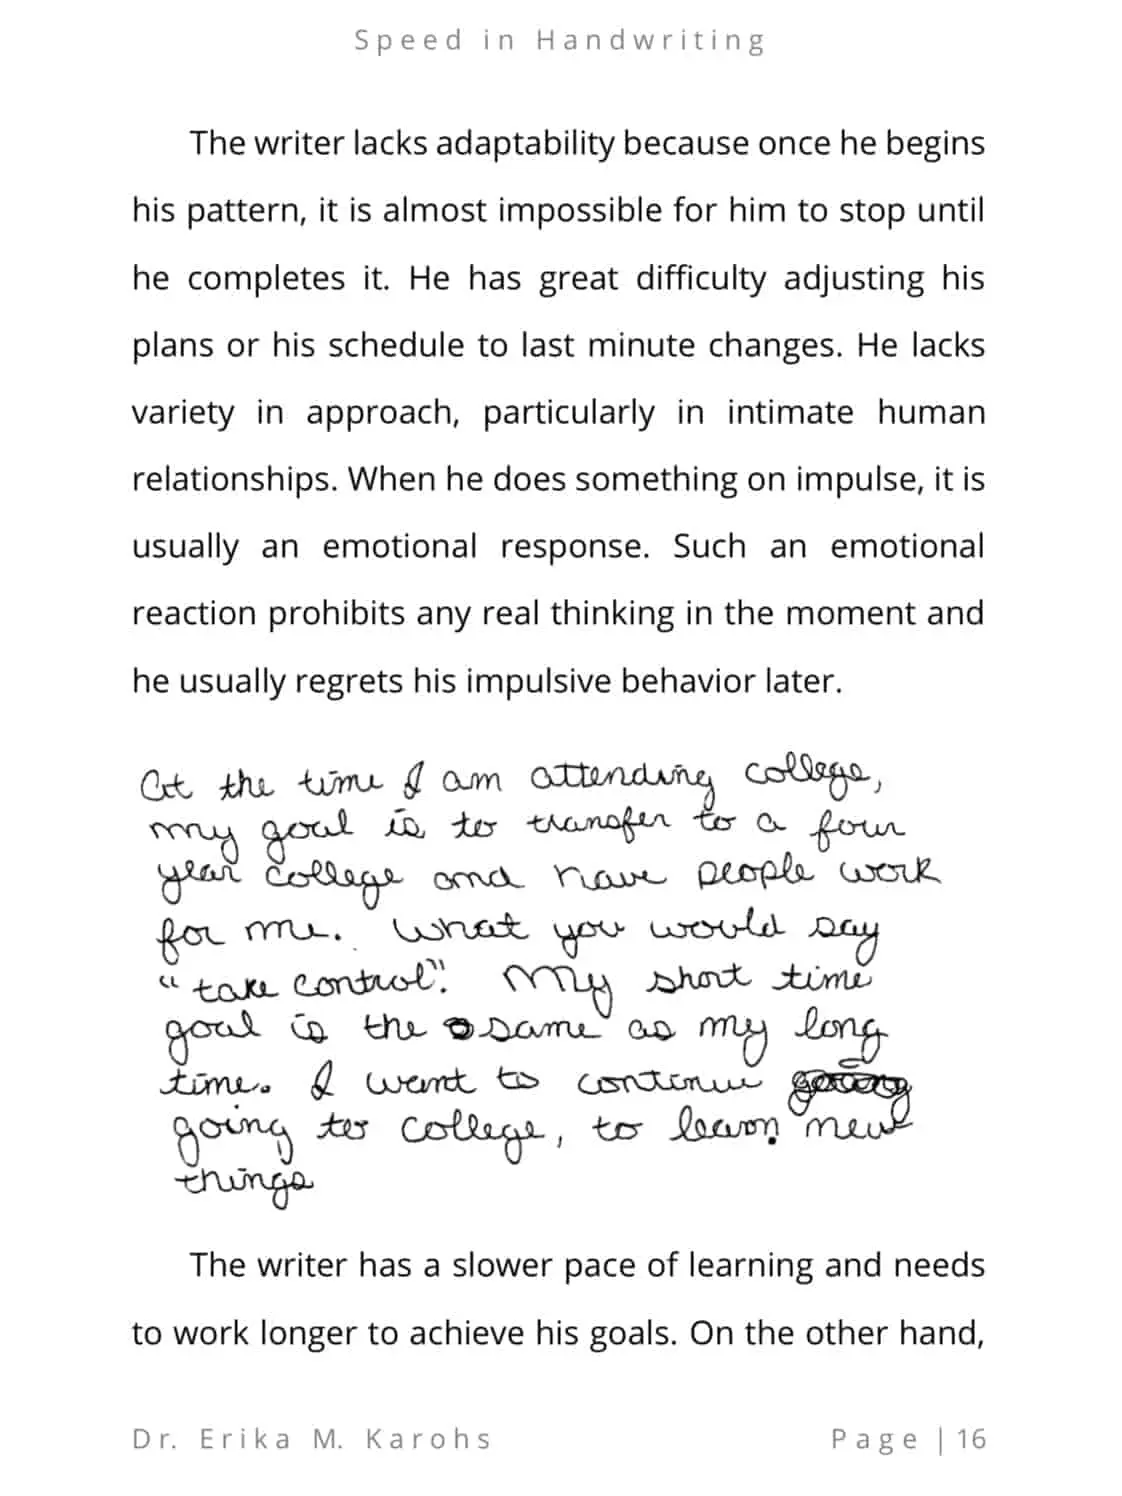 Speed in Handwriting
The writer lacks adaptability because once he begins
his pattern, it is almost impossible for him to stop until
he completes it. He has great difficulty adjusting his
plans or his schedule to last minute changes. He lacks
variety in approach, particularly in intimate human
relationships. When he does something on impulse, it is
usually an emotional response. Such an emotional
reaction prohibits any real thinking in the moment and
he usually regrets his impulsive behavior later.
At the time I am attending college,
my goal is to transfer to a four
year college and have people work
for me. What you would say
"take control". My short time
goal is the same as my long
time. I want to continue
going to college, to learn new
things
The writer has a slower pace of learning and needs
to work longer to achieve his goals. On the other hand,
Dr. Erika M. Karohs
Page | 16